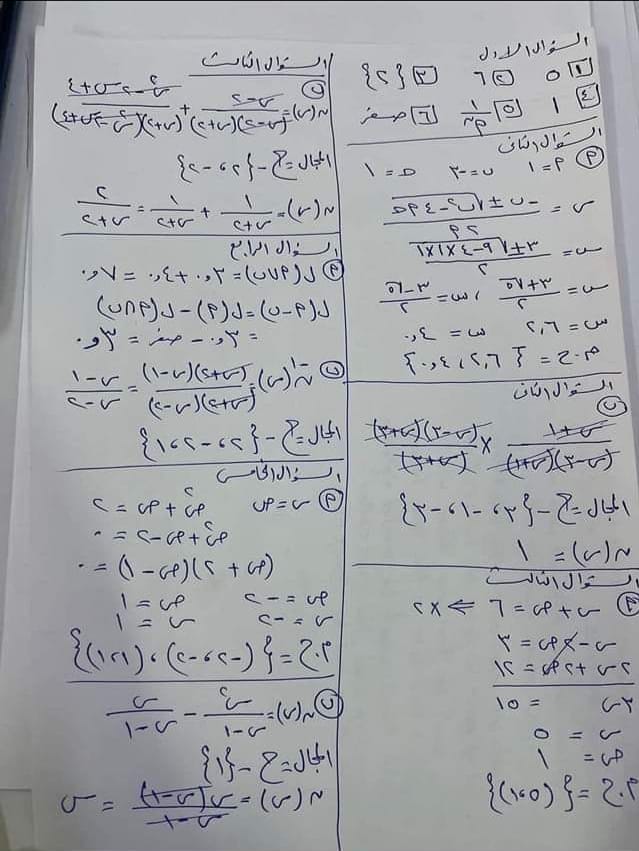 السؤال الاول
١ ٥ ٢ ٦ ٣ {٢}
٤ ١ ٥ ١/٣م ٦ صفر
السؤال الثانى
أ م = ١ ب = -٣ ج = ١
س = (-ب ± √(ب٢ - ٤ م ج)) / ٢م
س = (٣ ± √(٩ - ٤×١×١)) / ٢
س = (٣ + √٥) / ٢ ، س = (٣ - √٥) / ٢
س = ٢,٦ س = ٠,٤
م.ح = {٢,٦ ، ٠,٤}
السؤال الثانى
ب
(س+١) / (س-٣)(س+١) × (س-٣)(س+٣) / (س+٣)
المجال = ح - {٣ ، -١ ، -٣}
ن(س) = ١
السؤال الثالث
أ س + ص = ٦ ⇐ ×٢
س - ٢ص = ٣
٢س + ٢ص = ١٢
٣س = ١٥
س = ٥
ص = ١
م.ح = {(٥ ، ١)}
السؤال الثالث
ب
ن(س) = (س-٢) / (س-٢)(س+٢) + (س٢ - ٢س + ٤) / (س+٢)(س٢ - ٢س + ٤)
المجال = ح - {٢ ، -٢}
ن(س) = ١ / (س+٢) + ١ / (س+٢) = ٢ / (س+٢)
السؤال الرابع
أ ل(أ∪ب) = ٠,٣ + ٠,٤ = ٠,٧
ل(أ-ب) = ل(أ) - ل(أ∩ب)
= ٠,٣ - صفر = ٠,٣
ب ن-١(س) = (س+٢)(س-١) / (س+٢)(س-٢) = (س-١) / (س-٢)
المجال = ح - {٢ ، -٢ ، ١}
السؤال الخامس
أ س = ص ص٢ + ص = ٢
ص٢ + ص - ٢ = ٠
(ص + ٢)(ص - ١) = ٠
ص = -٢ ص = ١
س = -٢ س = ١
م.ح = {(-٢ ، -٢) ، (١ ، ١)}
ب ن(س) = س٢ / (س-١) - س / (س-١)
المجال = ح - {١}
ن(س) = س(س-١) / (س-١) = س